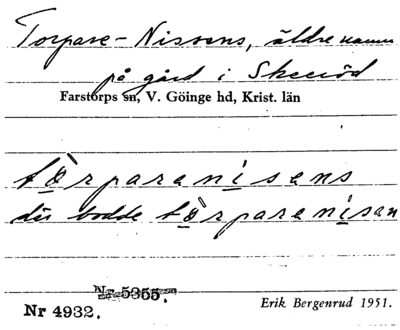 Torpare-Nissens, äldre namn
på gård i Skeeröd
Farstorps sn, V. Göinge hd, Krist. län
tòrparanisens
där bodde tòrparanisan
Nr 5355.
Nr 4932.
Erik Bergenrud 1951.